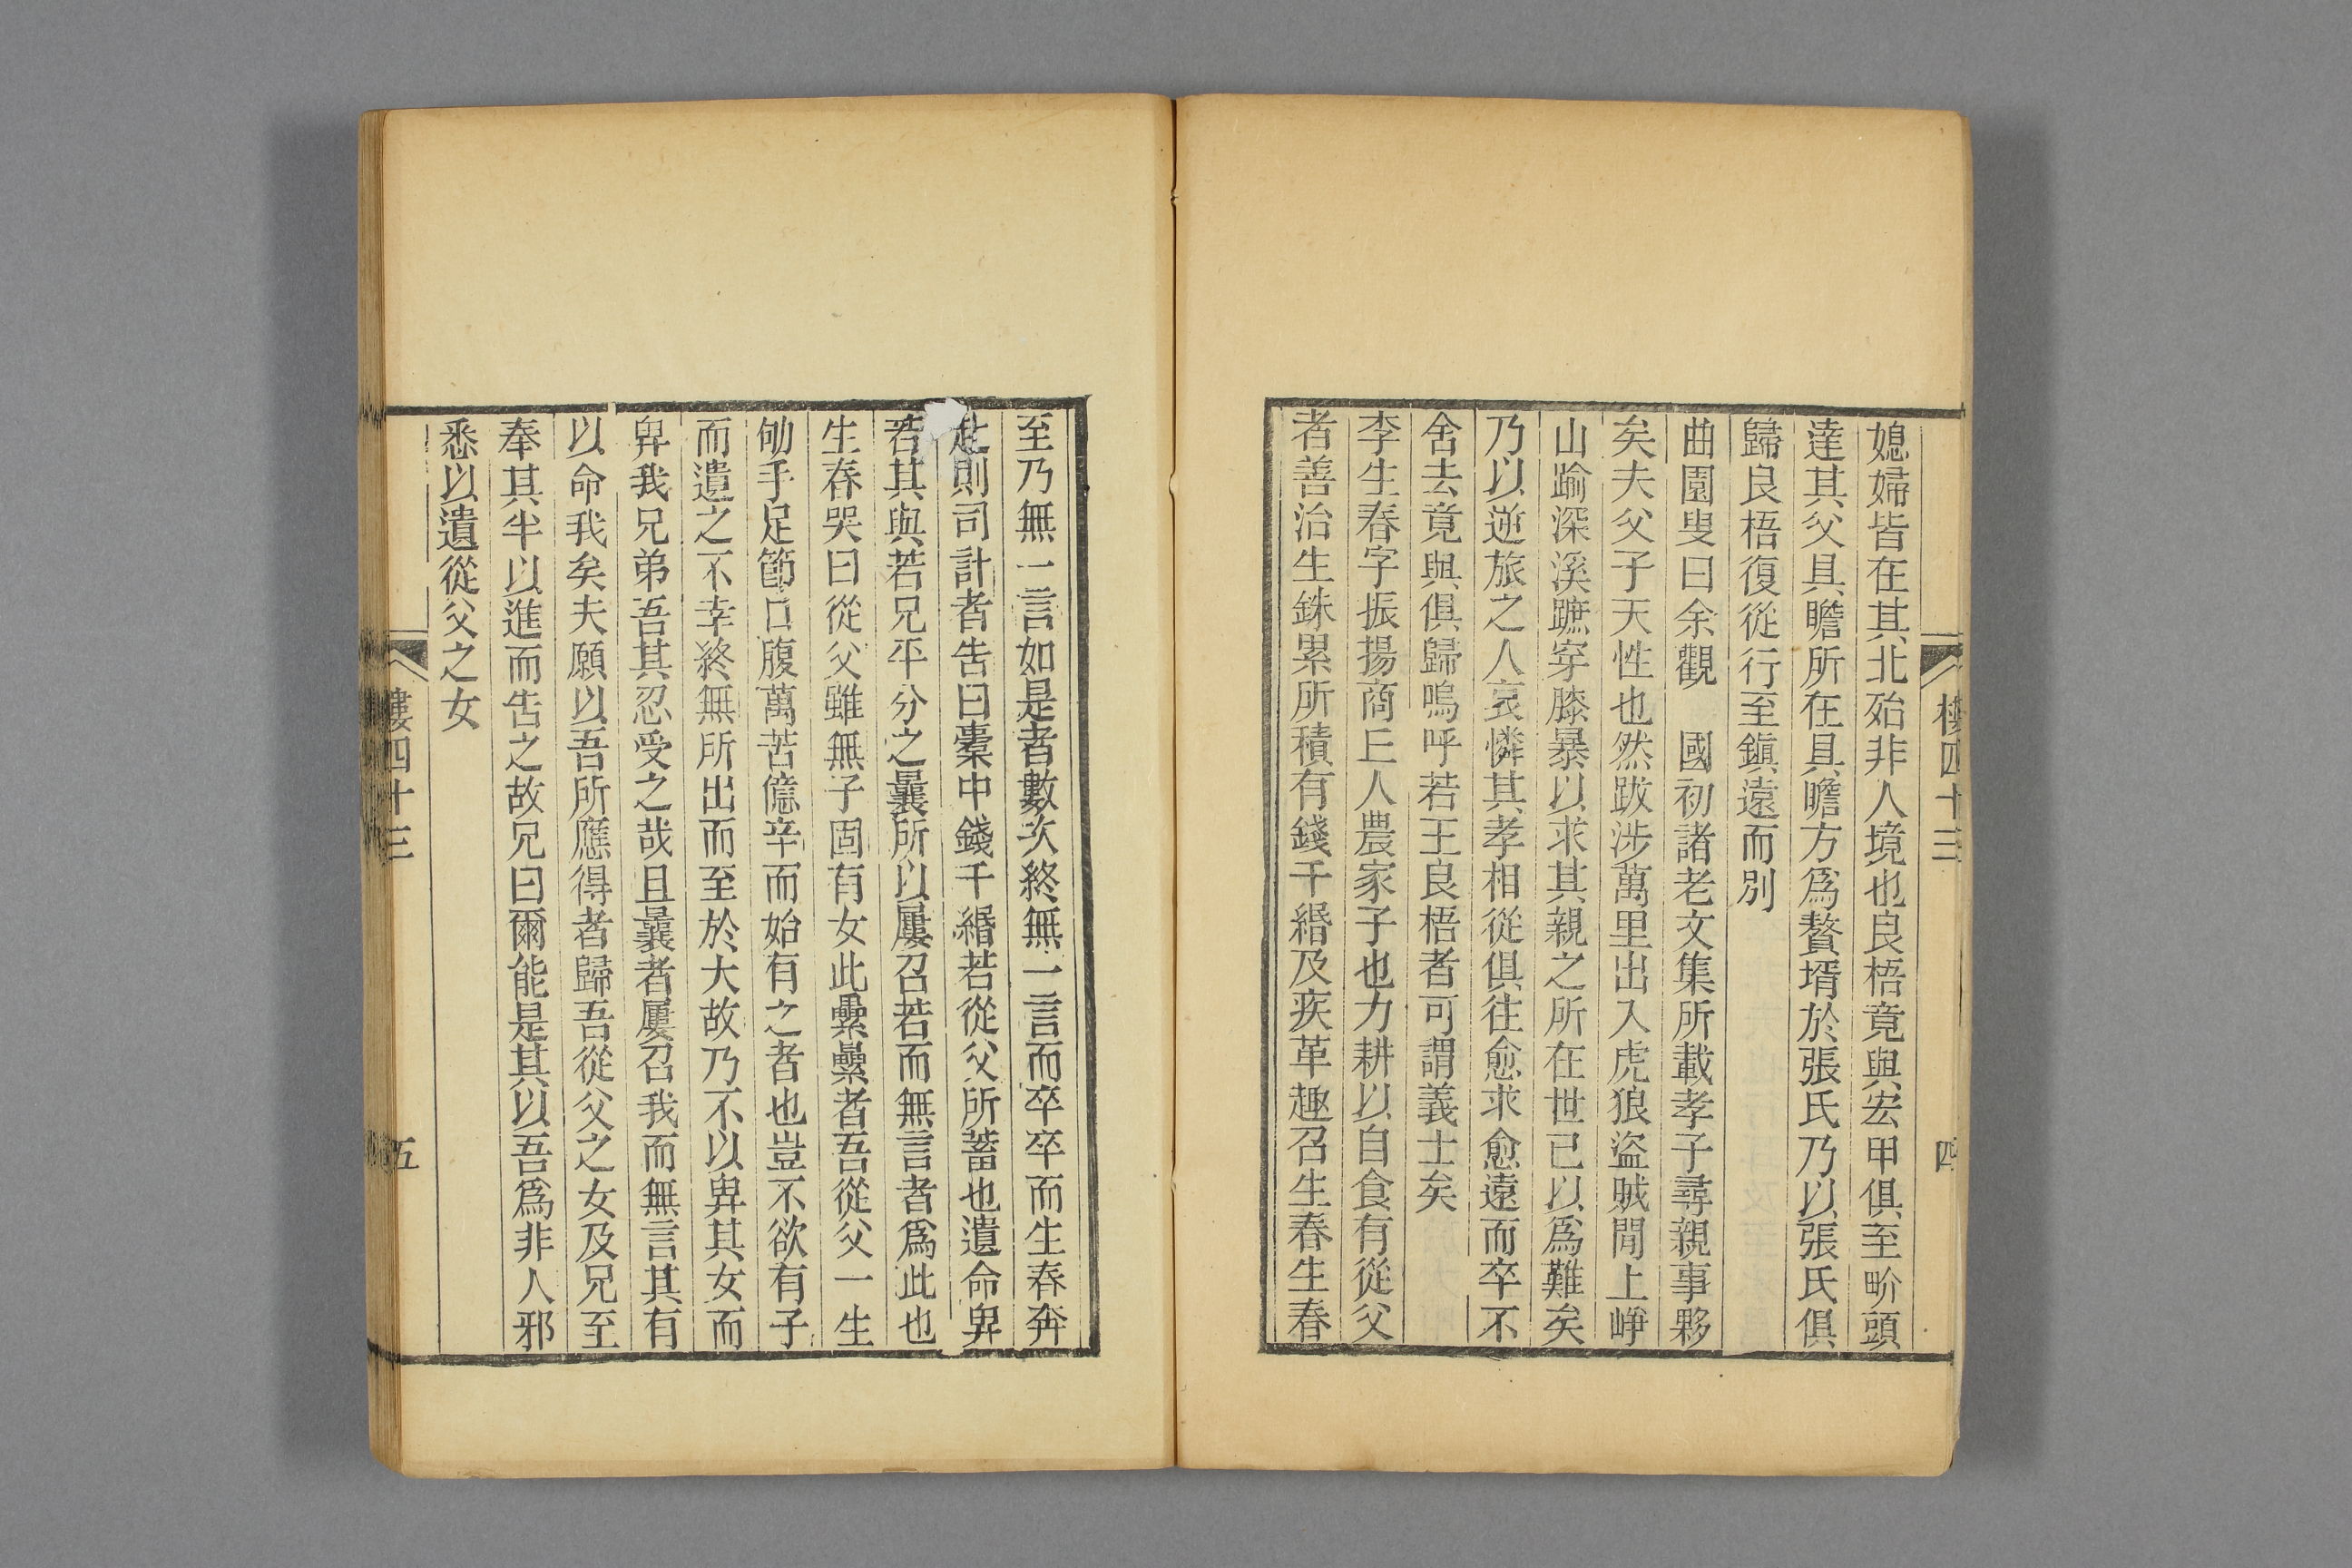 媳婦皆在其北殆非人境也良梧竟與宏甲俱至畍頭
達其父具瞻所在具瞻方爲贅壻於張氏乃以張氏俱
歸良梧復從行至鎭遠而別
曲園叟曰余觀　國初諸老文集所載孝子尋親事夥
矣夫父子天性也然跋涉萬里出入虎狼盜賊閒上崢
山踰深溪蹠穿膝暴以求其親之所在世已以爲難矣
乃以逆旅之人哀憐其孝相從俱往愈求愈遠而卒不
舍去竟與俱歸嗚呼若王良梧者可謂義士矣
李生春字振揚商丘人農家子也力耕以自食有從父
者善治生銖累所積有錢千緡及疾革趣召生春生春
樓四十三
四
至乃無一言如是者數次終無一言而卒卒而生春奔
赴則司計者告曰橐中錢千緡若從父所蓄也遺命畀
若其與若兄平分之曩所以屢召若而無言者爲此也
生春哭曰從父雖無子固有女此纍纍者吾從父一生
劬手足節口腹萬苦億辛而始有之者也豈不欲有子
而遺之不幸終無所出而至於大故乃不以畀其女而
畀我兄弟吾其忍受之哉且曩者屢召我而無言其有
以命我矣夫願以吾所應得者歸吾從父之女及兄至
奉其半以進而告之故兄曰爾能是其以吾爲非人邪
悉以遺從父之女
樓四十三
五